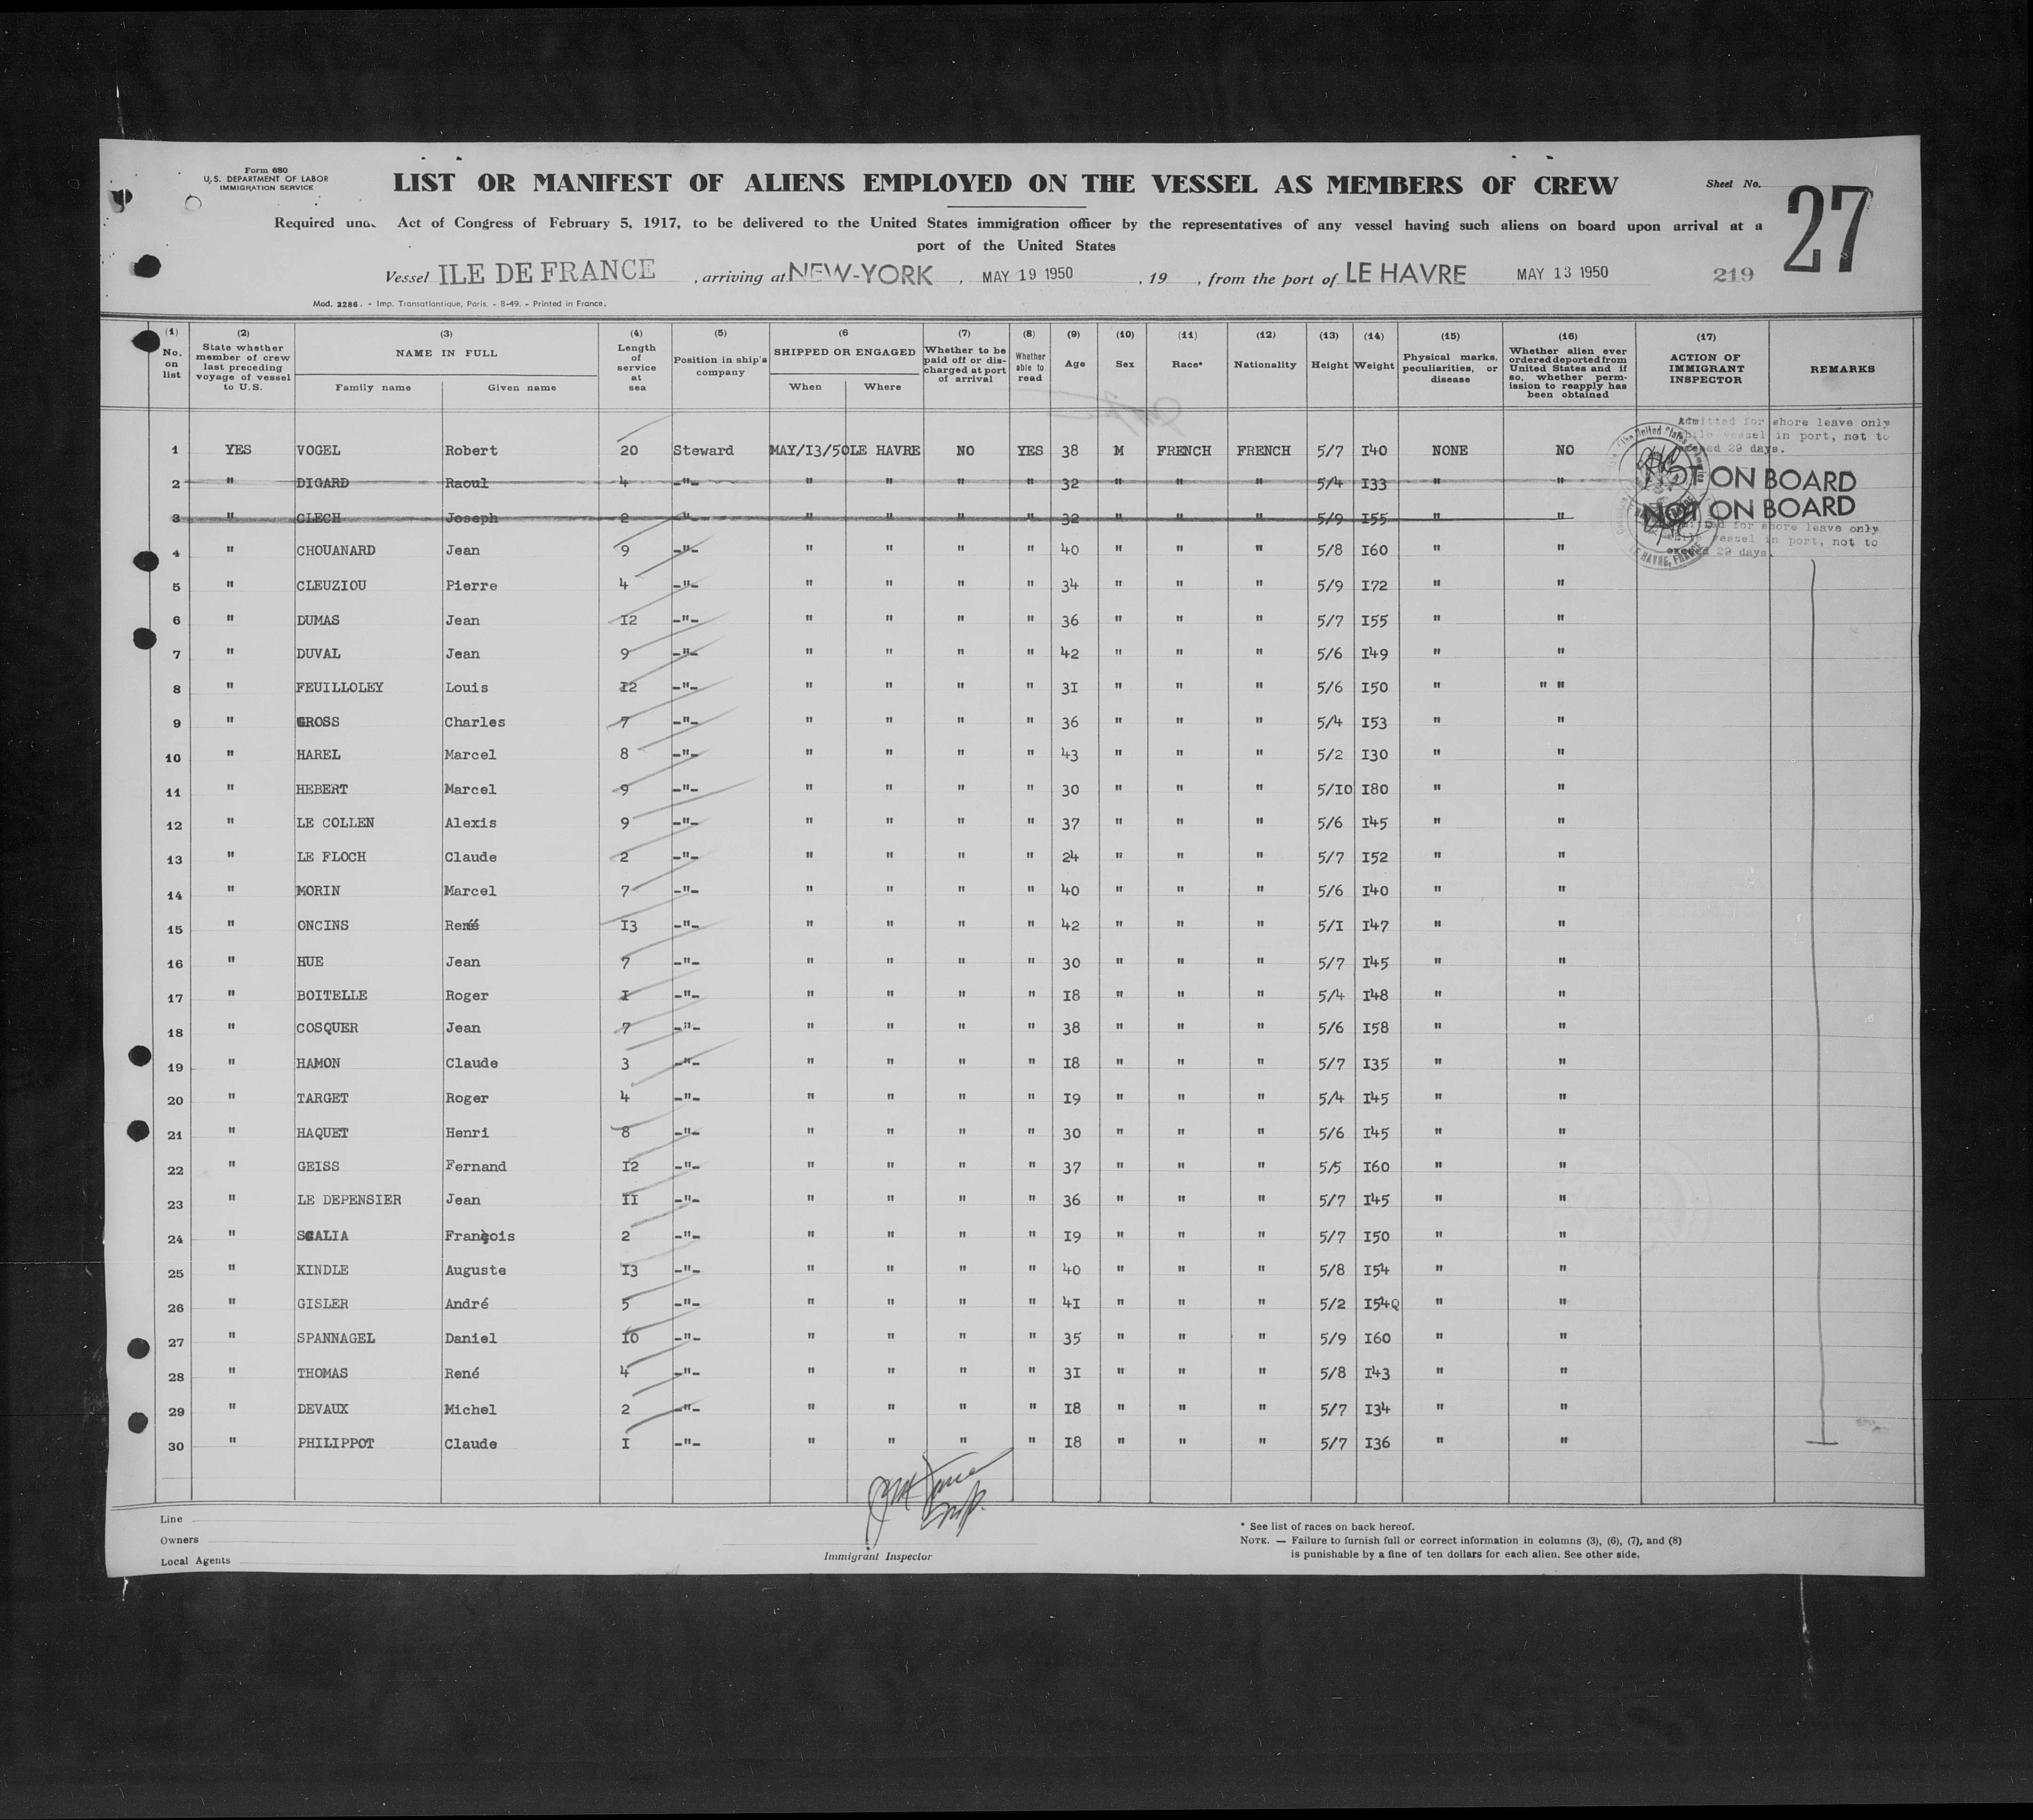 Form 680
U.S. DEPARTMENT OF LABOR
IMMIGRATION SERVICE
LIST OR MANIFEST OF ALIENS EMPLOYED ON THE VESSEL AS MEMBERS OF CREW
Sheet No. 27
Required Act of Congress of February 5, 1917, to be delivered to the United States immigration officer by the representatives of any vessel having such aliens on board upon arrival at a
port of the United States
Vessel ILE DE FRANCE , arriving at NEW-YORK , MAY 19 1950 , 19 , from the port of LE HAVRE MAY 13 1950 219
Mod. 2286. - Imp. Transatlantique, Paris. - 8-49. - Printed in France.
(1) No. on list
(2) State whether member of crew last preceding voyage of vessel to U.S.
(3) NAME IN FULL Family name Given name
(4) Length of service at sea
(5) Position in ship's company
(6 SHIPPED OR ENGAGED When Where
(7) Whether to be paid off or discharged at port of arrival
(8) Whether able to read
(9) Age
(10) Sex
(11) Race*
(12) Nationality
(13) Height
(14) Weight
(15) Physical marks, peculiarities, or disease
(16) Whether alien ever ordered deported from United States and if so, whether permission to reapply has been obtained
(17) ACTION OF IMMIGRANT INSPECTOR
REMARKS
Admitted for shore leave only
vessel in port, not to
29 days.
1 YES VOGEL Robert 20 Steward MAY/I3/50 LE HAVRE NO YES 38 M FRENCH FRENCH 5/7 I40 NONE NO
2 " DIGARD Raoul 4 -"- " " " " 32 " " " 5/4 I33 " " NOT ON BOARD
3 " CLECH Joseph 2 -"- " " " " 32 " " " 5/9 I55 " " NOT ON BOARD
for shore leave only
vessel in port, not to
29 days
LE HAVRE, FRANCE
4 " CHOUANARD Jean 9 -"- " " " " 40 " " " 5/8 I60 " "
5 " CLEUZIOU Pierre 4 -"- " " " " 34 " " " 5/9 I72 " "
6 " DUMAS Jean I2 -"- " " " " 36 " " " 5/7 I55 " "
7 " DUVAL Jean 9 -"- " " " " 42 " " " 5/6 I49 " "
8 " FEUILLOLEY Louis I2 -"- " " " " 3I " " " 5/6 I50 " " "
9 " GROSS Charles 7 -"- " " " " 36 " " " 5/4 I53 " "
10 " HAREL Marcel 8 -"- " " " " 43 " " " 5/2 I30 " "
11 " HEBERT Marcel 9 -"- " " " " 30 " " " 5/I0 I80 " "
12 " LE COLLEN Alexis 9 -"- " " " " 37 " " " 5/6 I45 " "
13 " LE FLOCH Claude 2 -"- " " " " 24 " " " 5/7 I52 " "
14 " MORIN Marcel 7 -"- " " " " 40 " " " 5/6 I40 " "
15 " ONCINS René I3 -"- " " " " 42 " " " 5/I I47 " "
16 " HUE Jean 7 -"- " " " " 30 " " " 5/7 I45 " "
17 " BOITELLE Roger I -"- " " " " I8 " " " 5/4 I48 " "
18 " COSQUER Jean 7 -"- " " " " 38 " " " 5/6 I58 " "
19 " HAMON Claude 3 -"- " " " " I8 " " " 5/7 I35 " "
20 " TARGET Roger 4 -"- " " " " I9 " " " 5/4 I45 " "
21 " HAQUET Henri 8 -"- " " " " 30 " " " 5/6 I45 " "
22 " GEISS Fernand I2 -"- " " " " 37 " " " 5/5 I60 " "
23 " LE DEPENSIER Jean II -"- " " " " 36 " " " 5/7 I45 " "
24 " SCALIA François 2 -"- " " " " I9 " " " 5/7 I50 " "
25 " KINDLE Auguste I3 -"- " " " " 40 " " " 5/8 I54 " "
26 " GISLER André 5 -"- " " " " 4I " " " 5/2 I54Q " "
27 " SPANNAGEL Daniel I0 -"- " " " " 35 " " " 5/9 I60 " "
28 " THOMAS René 4 -"- " " " " 3I " " " 5/8 I43 " "
29 " DEVAUX Michel 2 -"- " " " " I8 " " " 5/7 I34 " "
30 " PHILIPPOT Claude I -"- " " " " I8 " " " 5/7 I36 " "
Line
Owners
Local Agents
Immigrant Inspector
* See list of races on back hereof.
NOTE. — Failure to furnish full or correct information in columns (3), (6), (7), and (8)
is punishable by a fine of ten dollars for each alien. See other side.